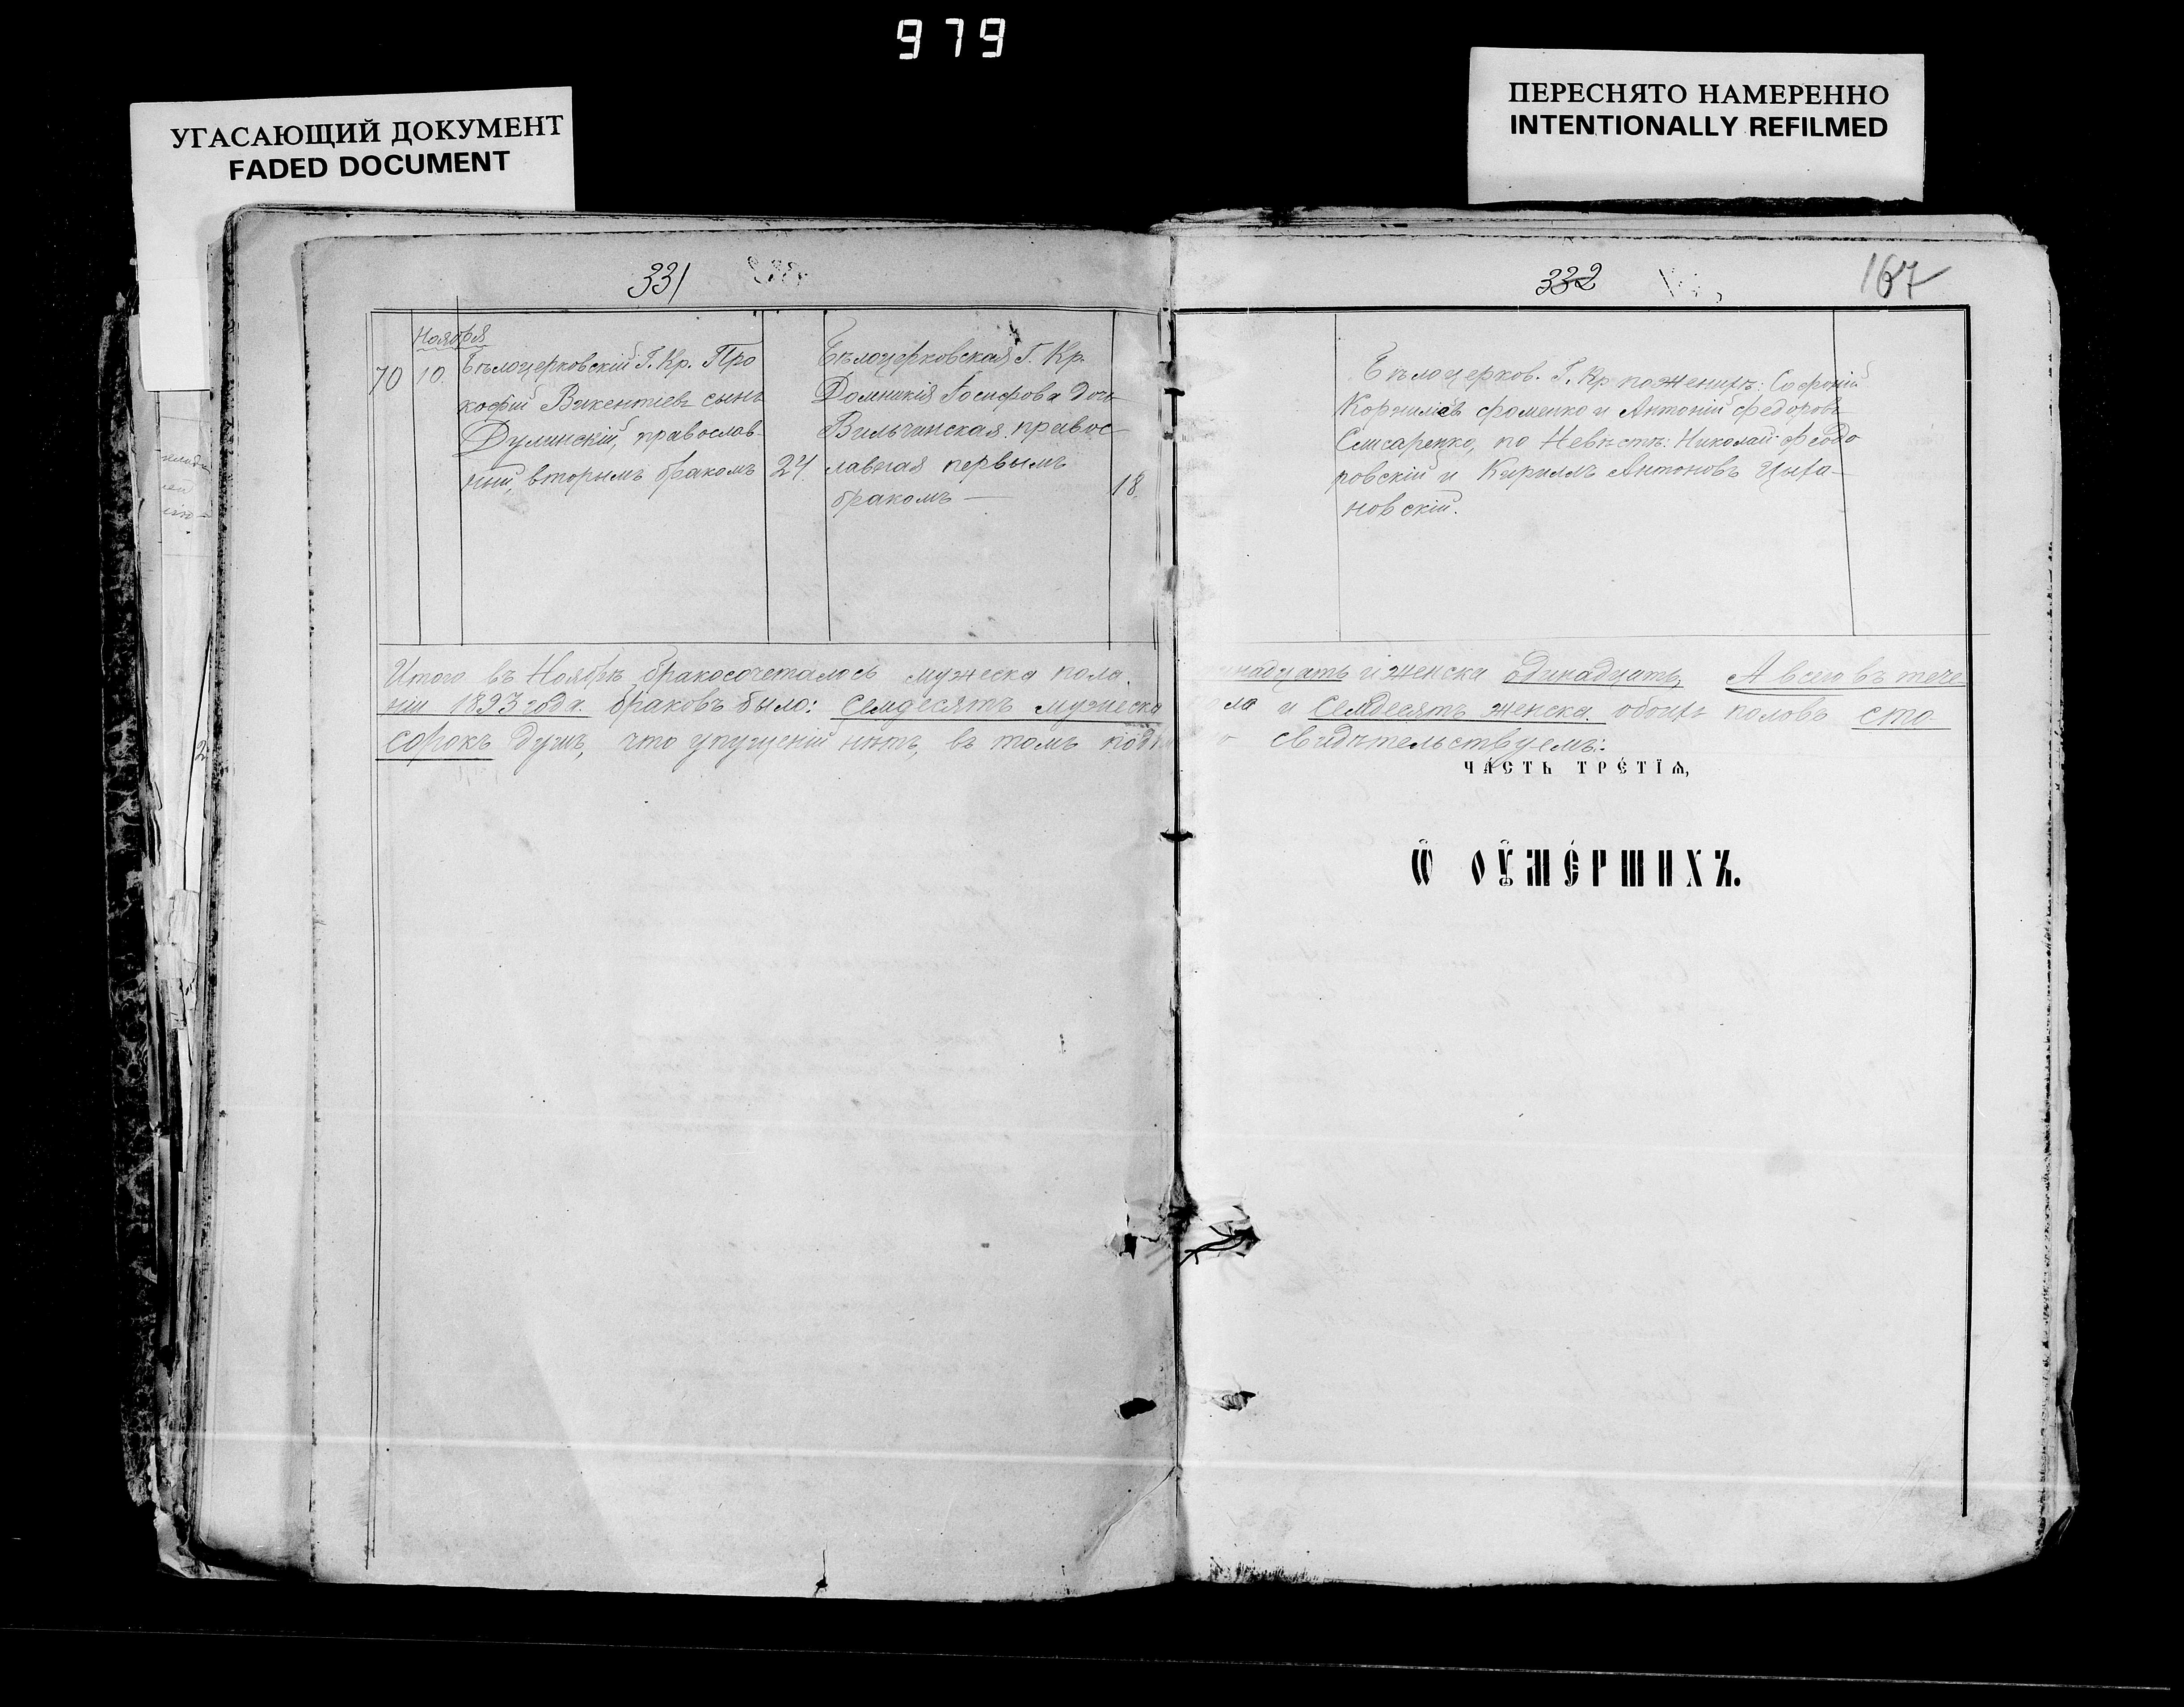 979
УГАСАЮЩИЙ ДОКУМЕНТ
FADED DOCUMENT
ПЕРЕСНЯТО НАМЕРЕННО
INTENTIONALLY REFILMED
331
Ноября
70
10.
Бѣлоцерковскій Г. Кр. Про
кофій Викентіевъ сынъ
Дулинскій, православ-
ный, вторымъ бракомъ
24.
Бѣлоцерковская Г. Кр.
Домникія Іосифова дочь
Вильчинская правос-
лавная первымъ
бракомъ —
18.
332
167
Бѣлоцерков. Г. Кр. по женихѣ: Софроній
Корниліевъ Фоменко и Антоній Федоровъ
Слисаренко, по Невѣстѣ: Николай Феодо
ровскій и Кириллъ Антоновъ Цыга-
новскій.
Итого въ Ноябрѣ бракосочеталось мужеска пола
надцать и женска одинадцать, А всего въ тече
ніи 1893 года. браковъ было: Семдесятъ мужеска
ла и Семдесятъ женска. обоихъ половъ сто
сорокъ душъ, что упущеній нѣтъ, въ томъ
свидѣтельствуемъ:
ЧА́СТЬ ТРЕ́ТІѦ,
Ѽ ОУ҆МЕ́РШИХЪ.